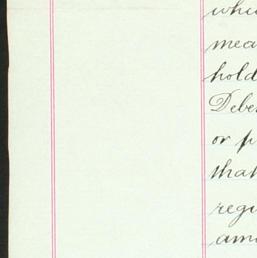 whic
mea
hold
Debe
or p
that
regi
amo